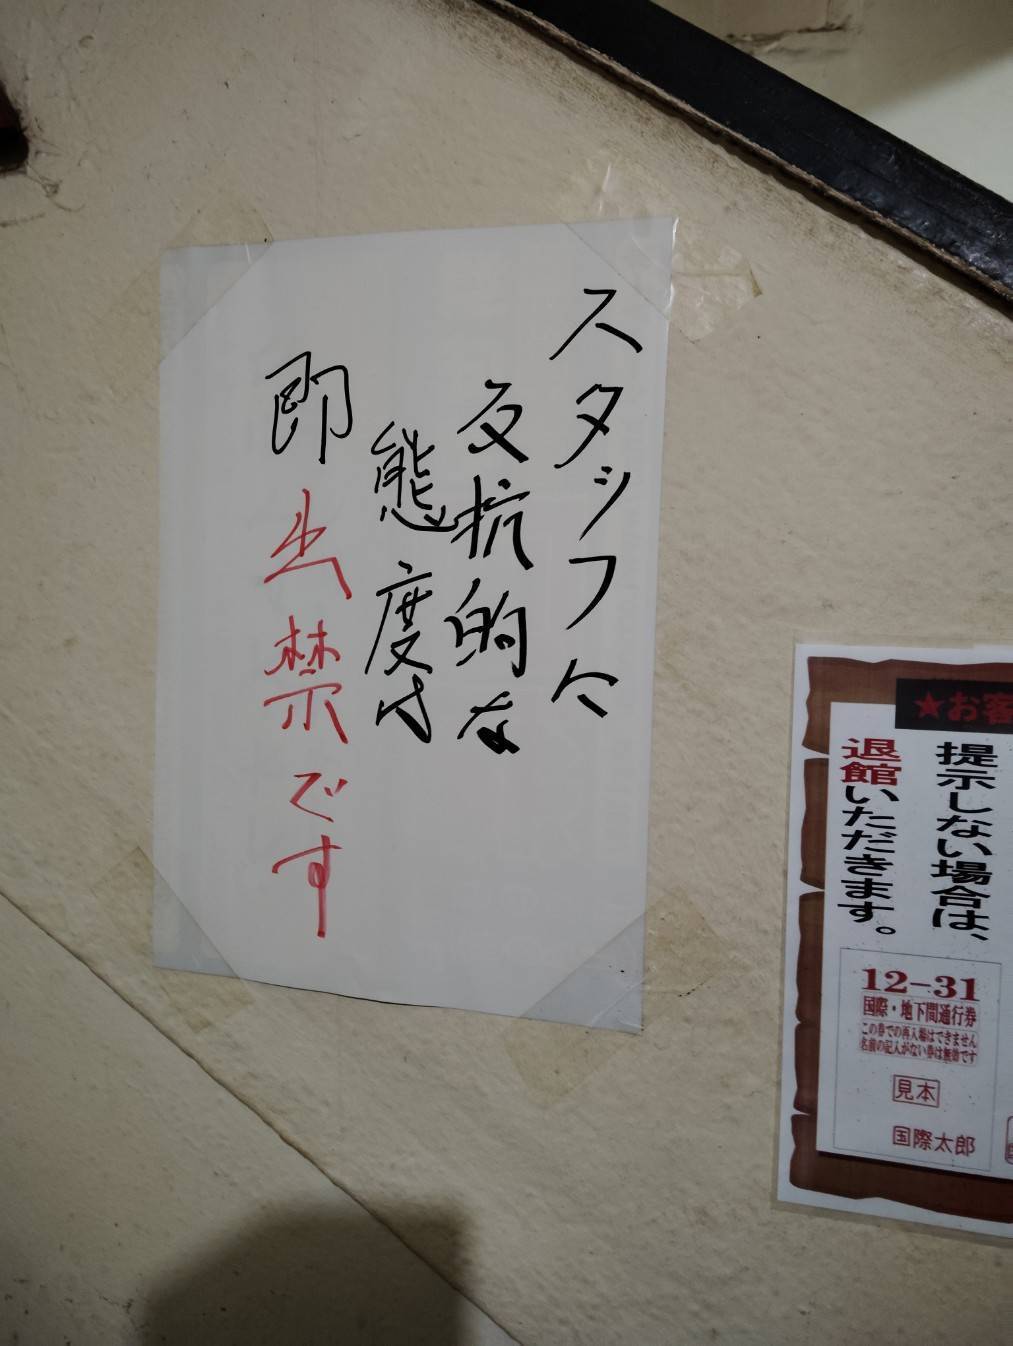 スタッフに
反抗的な
態度は
即出禁です
★お客
提示しない場合は、
退館いただきます。
12-31
国際・地下間通行券
この券での再入場はできません
名前の記入がない券は無効です
見本
国際太郎